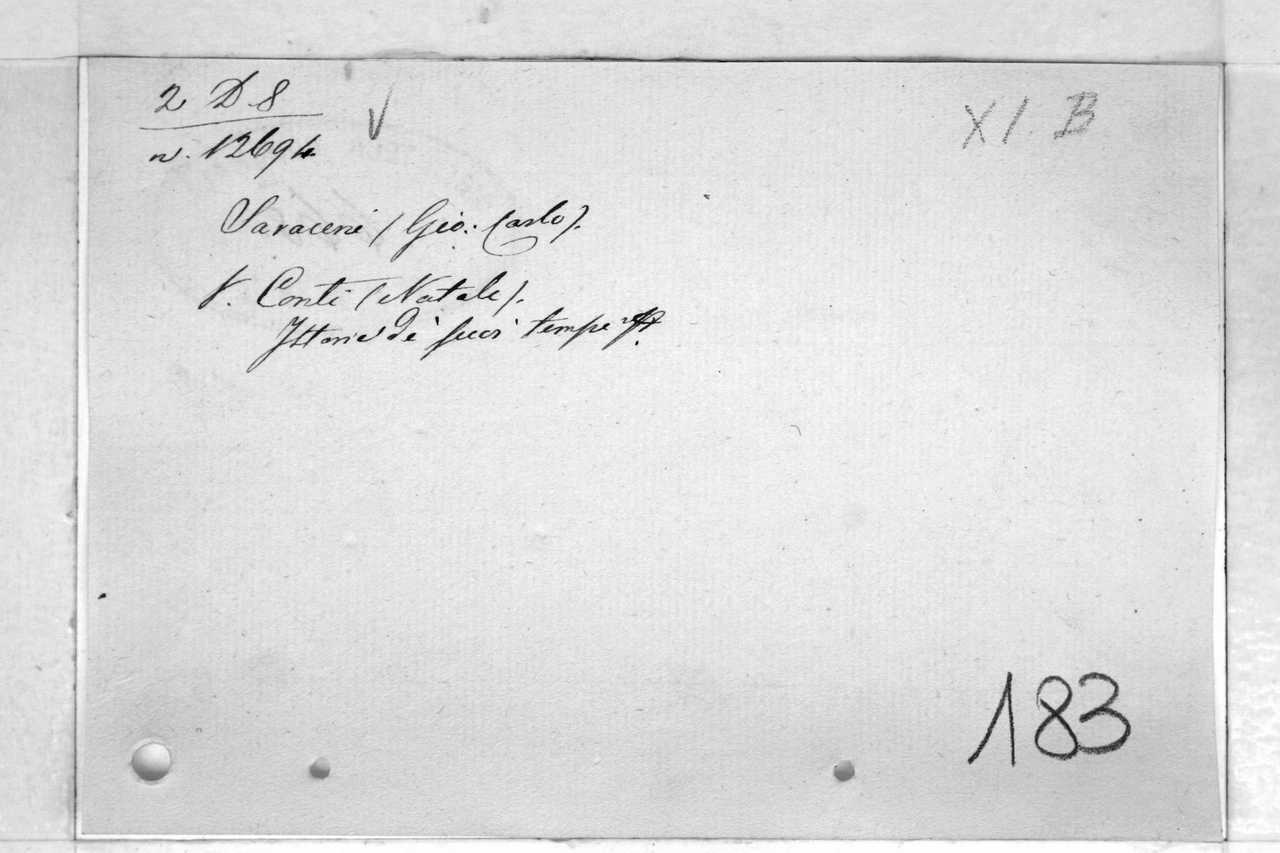 2 D 8
XI. B
n. 12694
Saraceni (Gio: Carlo).
V. Conti (Natale).
Istorie de' suoi tempi
183